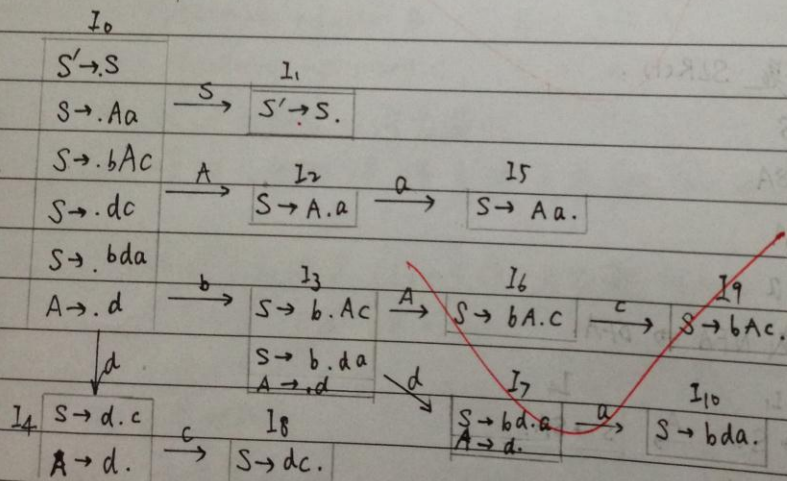 I0
S'→.S
S→.Aa
S→.bAc
S→.dc
S→.bda
A→.d
S
I1
S'→S.
A
I2
S→A.a
a
I5
S→Aa.
b
I3
S→b.Ac
S→b.da
A→.d
A
I6
S→bA.c
c
I9
S→bAc.
d
I7
S→bd.a
A→d.
a
I10
S→bda.
d
I4
S→d.c
A→d.
c
I8
S→dc.